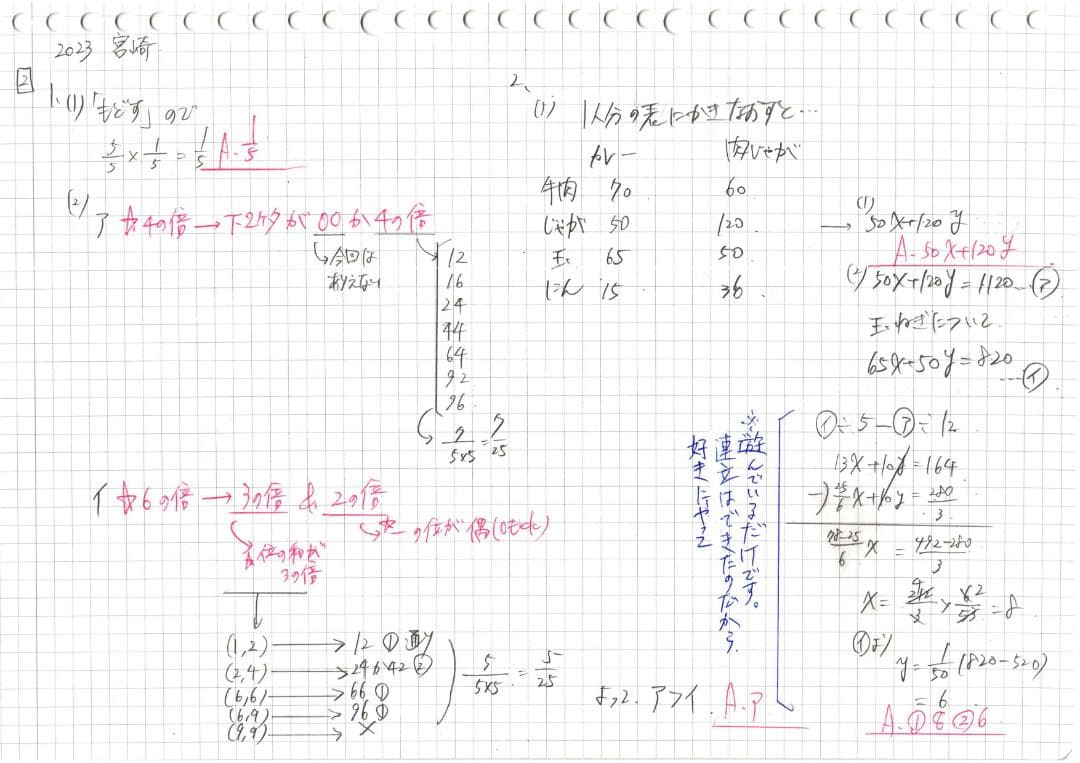 2023 宮崎
2
1.(1)「もどす」ので
5/5 × 1/5 = 1/5 A. 1/5
(2)
ア ☆4の倍→下2ケタが00か4の倍
↳今回は
ありえない
12
16
24
44
64
92
96
7/5×5 = 7/25
イ ☆6の倍→3の倍 & 2の倍
→一の位が偶(0もok)
各位の和が
3の倍
(1,2)→12 ①通り
(2,4)→24か42 ②
(6,6)→66 ①
(6,9)→96 ①
(9,9)→×
5/5×5 = 5/25
よって、ア>イ A.ア
2、
(1) 1人分の表にかきなおすと…
カレー 肉じゃが
牛肉 70 60
じゃが 50 120
玉 65 50
にん 15 36
(1)
→ 50x+120y
A. 50x+120y
(2) 50x+120y=1120…㋐
玉ねぎについて
65x+50y=820
…㋑
㋑÷5-㋐÷12
13x+10y=164
-) 25/6 x+10y=280/3
78-25/6 x = 492-280/3
x = 212/3 × 6/53 = 8
㋑より
y= 1/50 (820-520)
= 6
A. ① 8 ② 6
※遊んでいるだけです。
連立はできたのだから
好きにやって